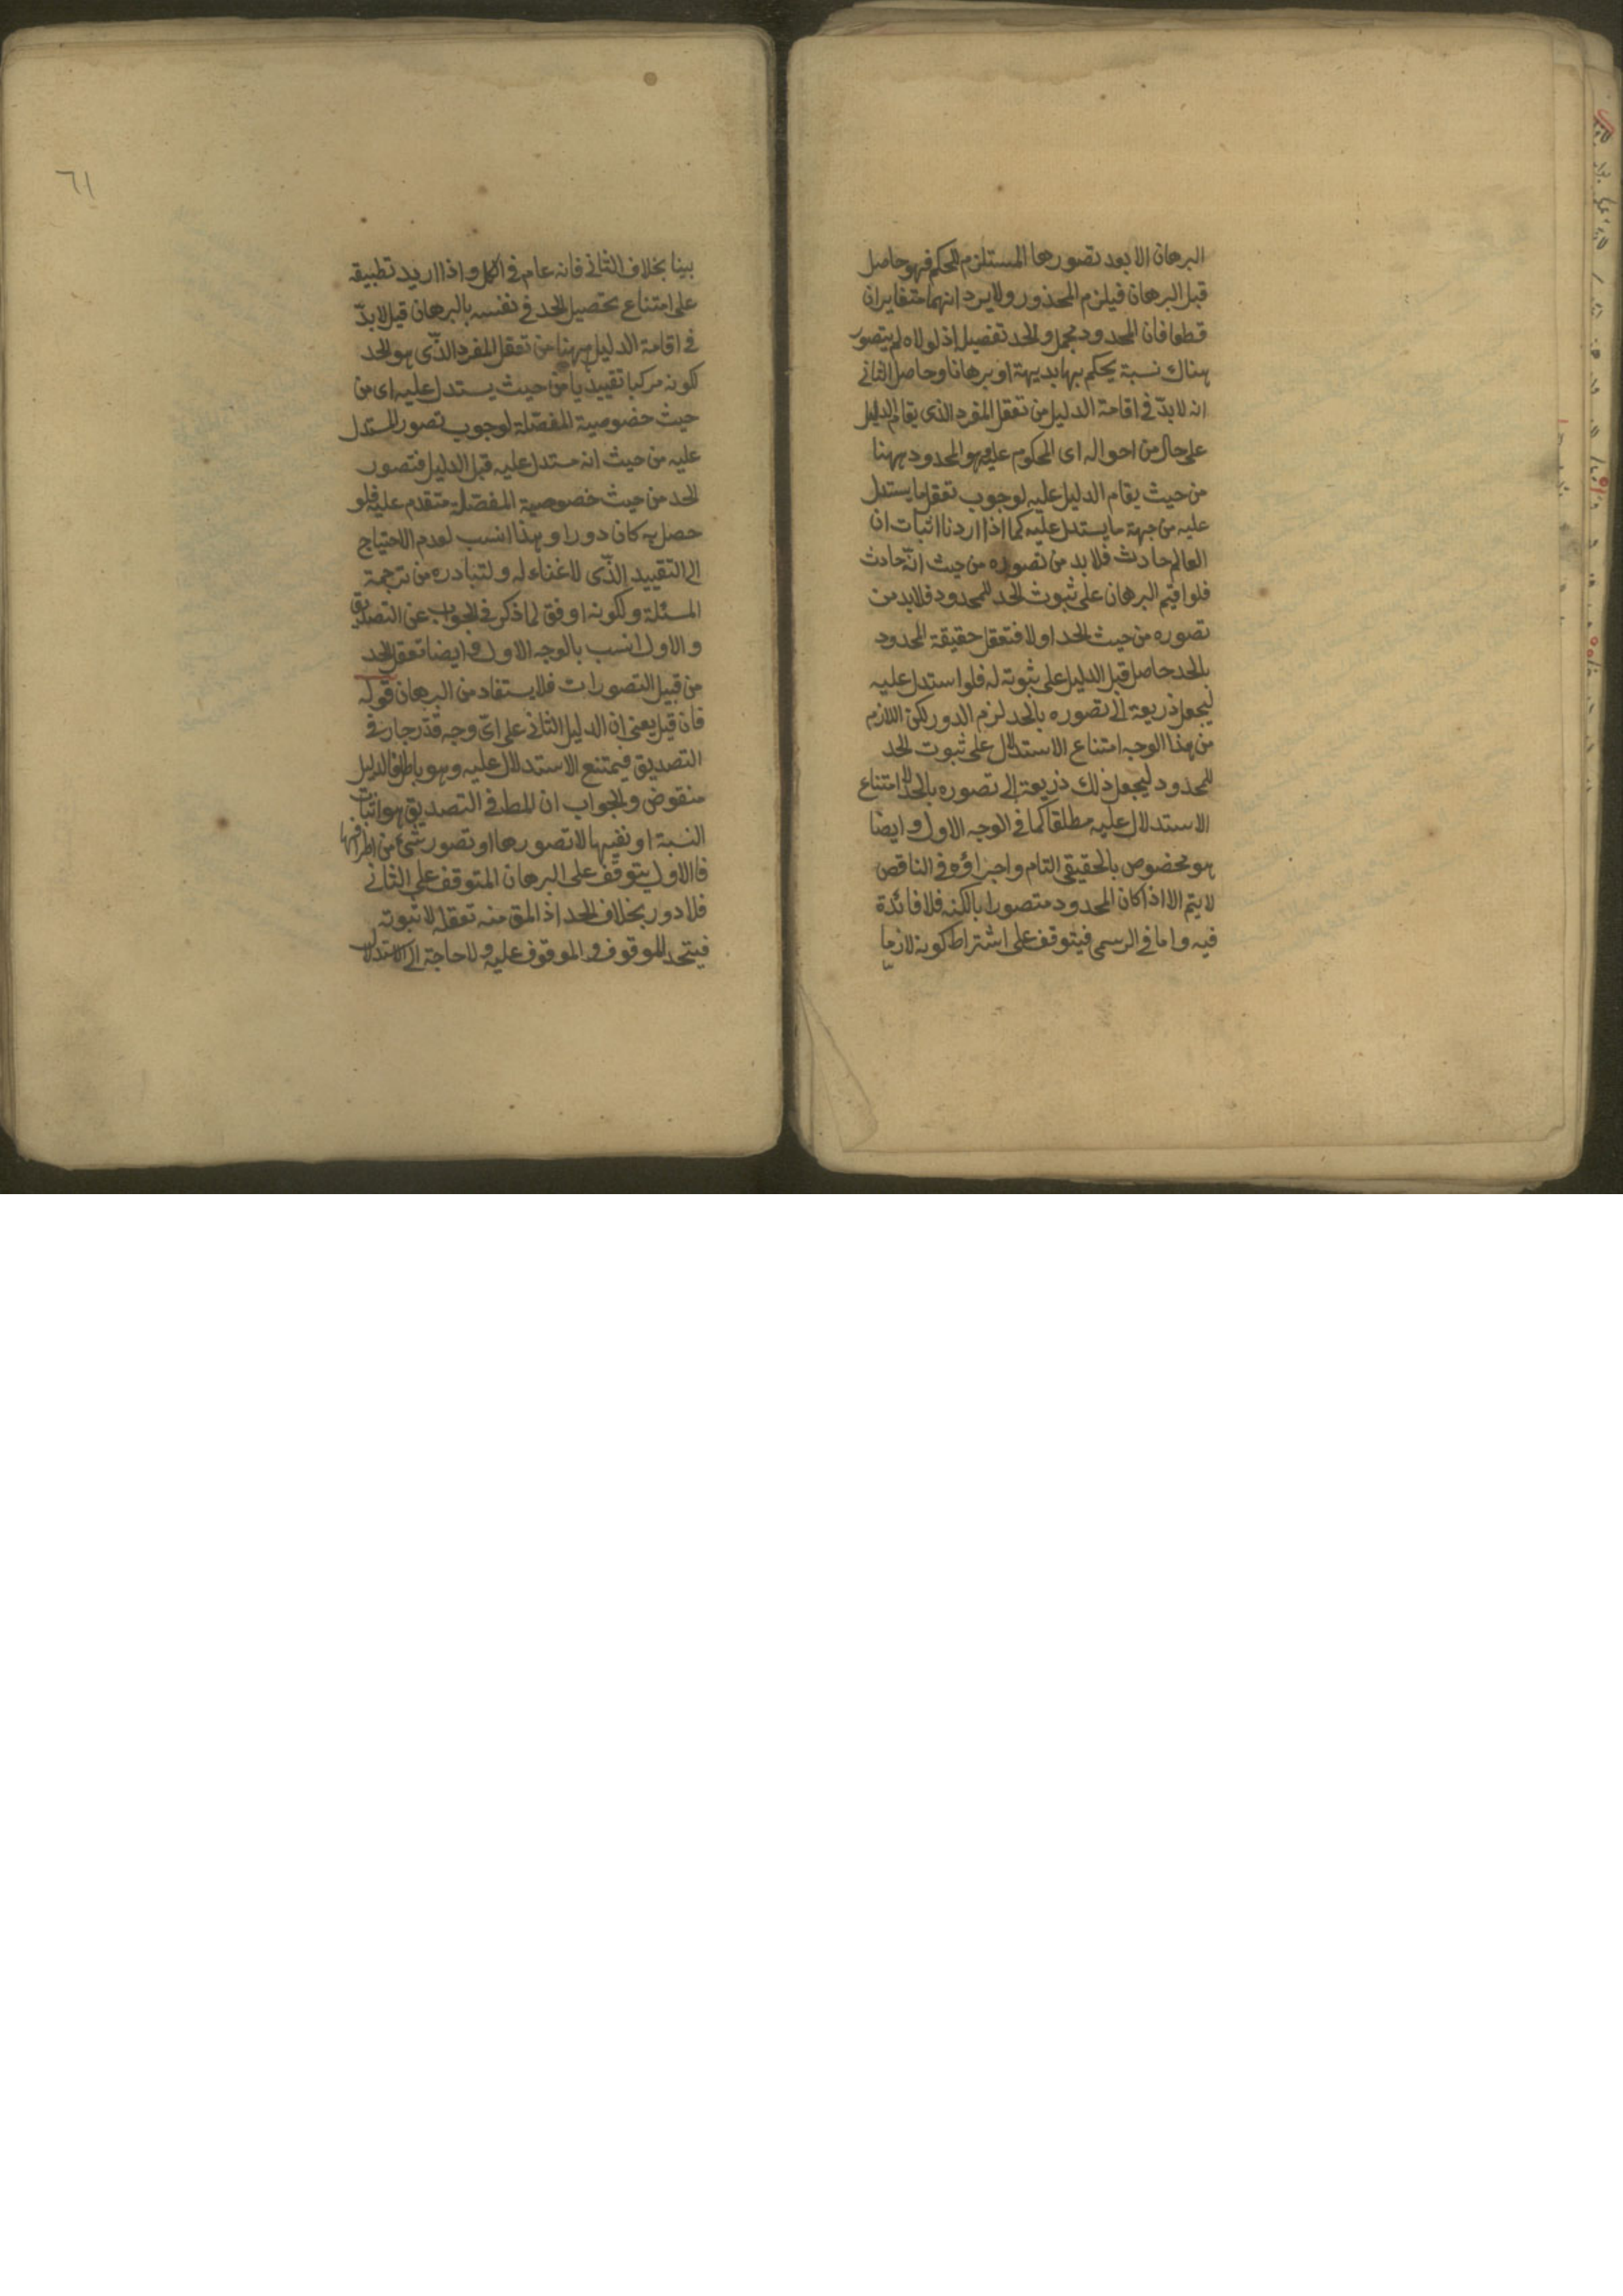 البرهان الا بعد تصورها المستلزم للحكم فهو حاصل
قبل البرهان فيلزم المحذور ولا يرد انهما متغايران
قطعا فان المحدود مجمل والحد تفصيل اذ لولاه لم يتصور
هناك نسبة يحكم بها بديهة او برهانا وحاصل الثاني
انه لا بدّ في اقامة الدليل من تعقل المفرد الذي يقام الدليل
على حال من احواله اى المحكوم عليه وهو المحدود ههنا
من حيث يقام الدليل عليه لوجوب تعقل ما يستدل
عليه من جهة ما يستدل عليه كما اذا اردنا اثبات ان
العالم حادث فلا بد من تصوره من حيث انّه حادث
فلو اقيم البرهان على ثبوت الحد للمحدود فلا بد من
تصوره من حيث الحد اولا فتعقل حقيقة المحدود
بالحد حاصل قبل الدليل على ثبوته له فلو استدل عليه
ليجعل ذريعة الى تصوره بالحد لزم الدور لكن اللازم
من هذا الوجه امتناع الاستدلال على ثبوت الحد
للمحدود ليجعل ذلك ذريعة الى تصوره بالحد لا امتناع
الاستدلال عليه مطلقا كما في الوجه الاول وايضا
هو مخصوص بالحقيقي التام واجراؤه في الناقص
لا يتم الا اذا كان المحدود متصورا بالكنه فلا فائدة
فيه واما في الرسمي فيتوقف على اشتراط كونه لازما
٦١
بينا بخلاف الثاني فانه عام في الكل واذا اريد تطبيقه
على امتناع تحصيل الحد في نفسه بالبرهان قيل لا بدّ
في اقامة الدليل ههنا من تعقل المفرد الذّى هو الحد
لكونه مركبا تقييديا من حيث يستدل عليه اى من
حيث خصوصية المفصّلة لوجوب تصور المستدل
عليه من حيث انه مستدل عليه قبل الدليل فتصور
الحد من حيث خصوصية المفصّلة متقدم عليه فلو
حصل به كان دورا وهذا انسب لعدم الاحتياج
الى التقييد الذّى لا غناء له ولتبادره من ترجمة
المسئلة ولكونه اوفق لما ذكر في الجواب عن التصديق
والاول انسب بالوجه الاول وايضا تعقل الحد
من قبيل التصورات فلا يستفاد من البرهان قوله
فان قيل يعنى ان الدليل الثاني على اىّ وجه قدّر جار في
التصديق فيمتنع الاستدلال عليه وهو باطل فالدليل
منقوض والجواب ان المط في التصديق هو اثبات
النسبة او نفيها لا تصورها او تصور شئ من اطرافها
فالاول يتوقف على البرهان المتوقف على الثاني
فلا دور بخلاف الحد اذ المق منه تعقله لا ثبوته
فيتحد الموقوف والموقوف عليه ولا حاجة الى الاستدلال